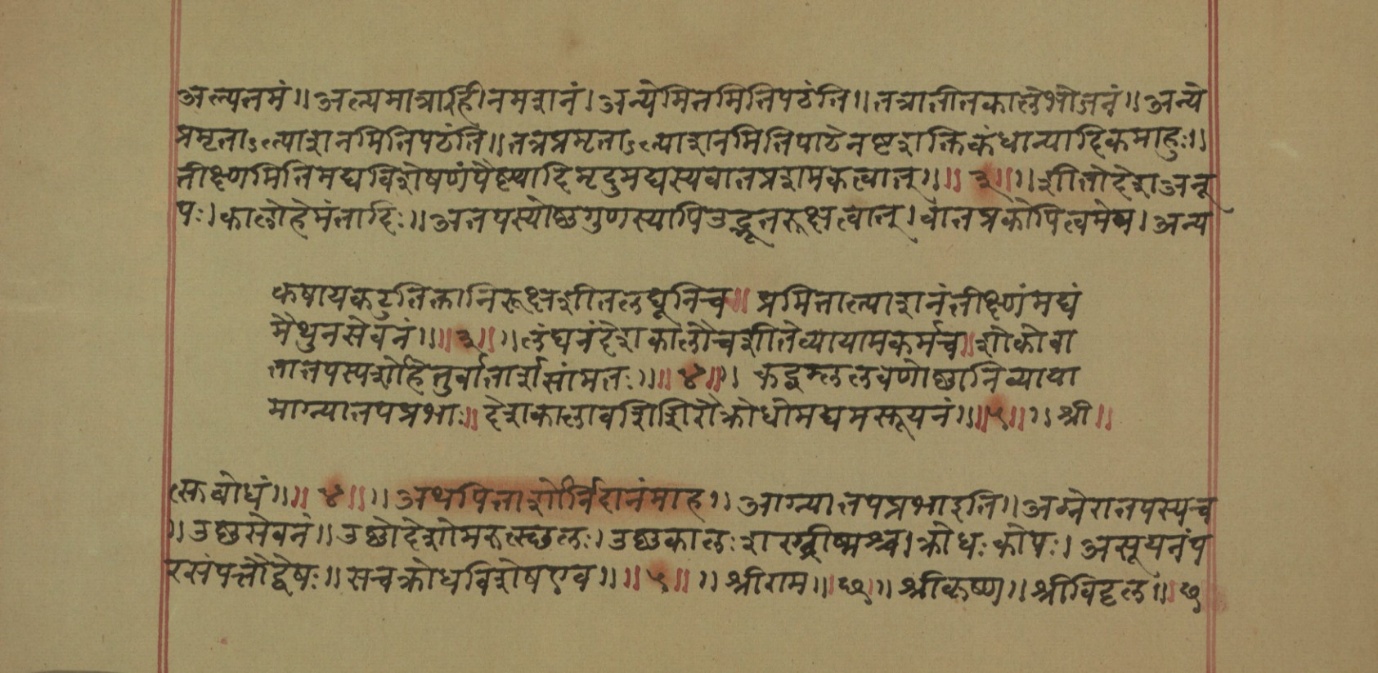 अल्यतमं॥ अल्यमात्राहीनमशनं। अन्येमितमितिपठंति॥ तत्रातीतकालेभोजनं॥ अन्ये
प्रमृताऽत्याशनमितिपठंति॥ तत्रप्रमृताऽत्याशनमितिपाठेनष्टशक्तिकंधान्यादिकमाहुः॥
तीक्ष्णमितिमद्यविशेषणंपैष्ट्यादिमृदुमद्यस्यवातप्रशमकत्वात्॥॥ ३॥॥ शीतोदेशअनू
पः। कालोहेमंतादिः॥ अतपस्योष्णगुणस्यापिउद्भूतरूक्षत्वात्। वातप्रकोपित्वमेव। अन्य
कषायकटुतिक्तानिरूक्षशीतलघूनिच॥ प्रमितात्याशनंतीक्ष्णंमद्यं
मैथुनसेवनं॥॥३॥॥ लंघनंदेशकालौचशीतेव्यायामकर्मच॥शोकोवा
तातपस्पर्शोहेतुर्वातार्शसांमतः॥॥ ४॥॥ कट्वम्ललवणोष्णानिव्याया
माग्न्यातपप्रभाः॥ देशकालावशिशिरौक्रोधोमद्यमसूयनं॥॥५॥॥ श्री॥
त्क्तबोधं॥॥ ४॥॥ अथपित्तार्शोर्निदानंमाह॥ आग्न्यातपप्रभाइति॥ अग्नेरातपस्यच
॥ उष्णसेवनं॥ उष्णोदेशोमरुत्स्छलः। उष्णकालःशरद्ग्रीष्मश्च। क्रोधःकोपः। असूयनंप
रसंपत्तौद्वेषः॥ सचक्रोधविशेषएव॥॥ ५॥॥ श्रीराम॥ छ॥ श्रीकृष्ण॥ श्रीविठ्ठल॥ छ